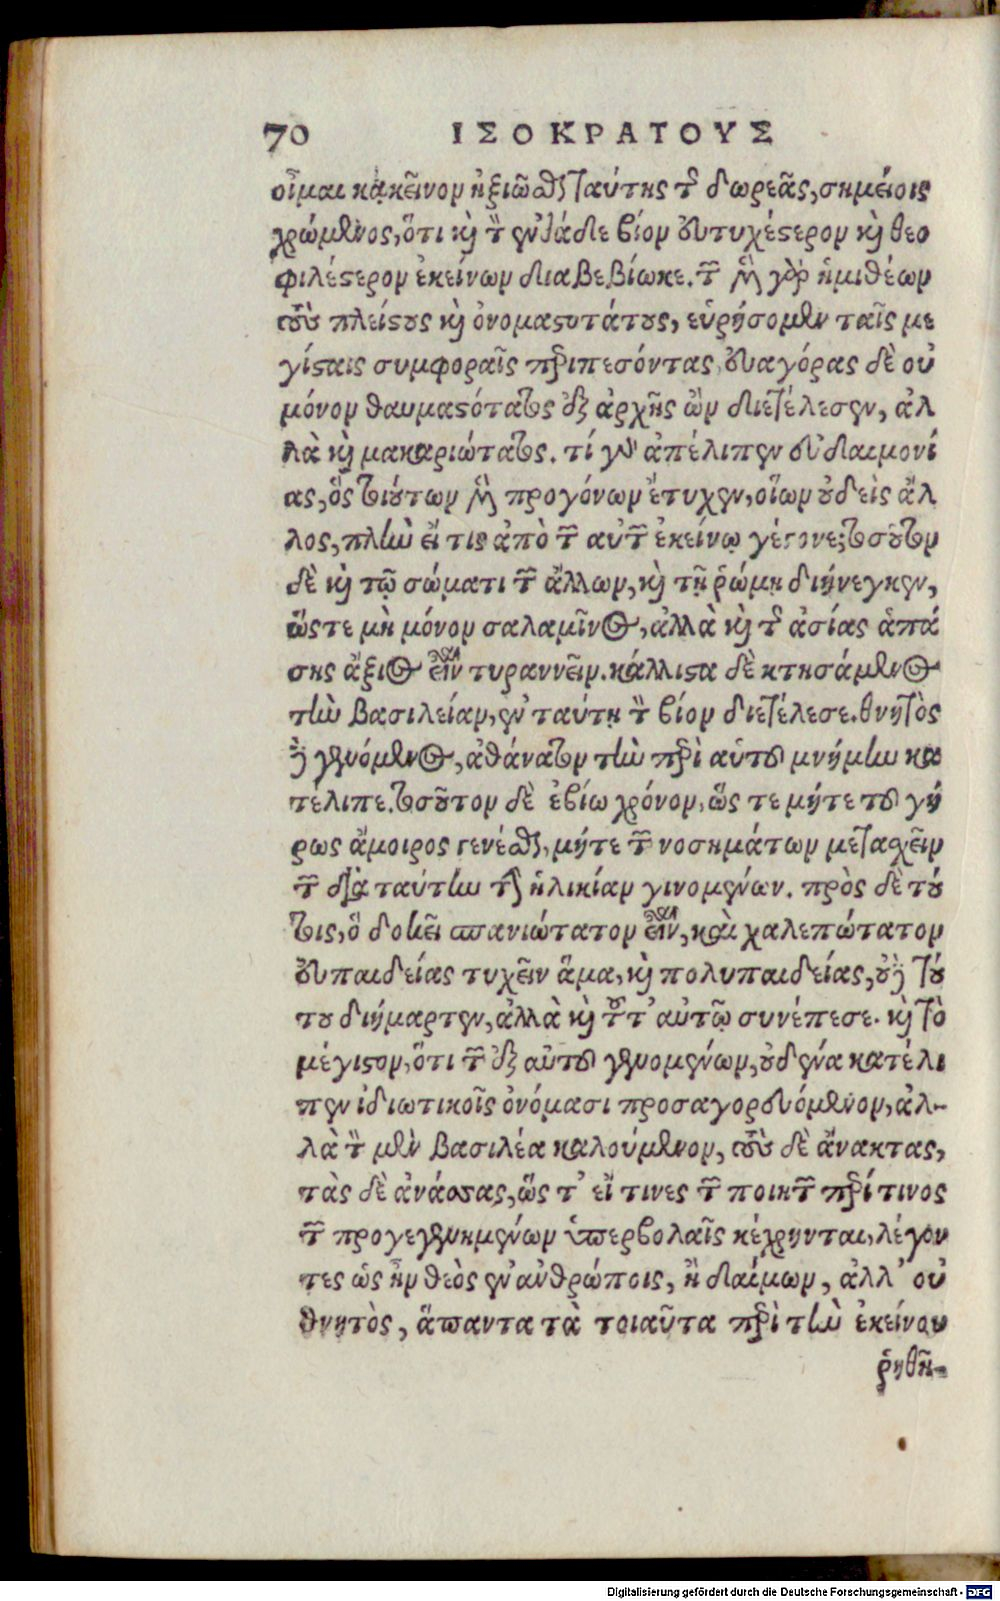 70 ΙΣΟΚΡΑΤΟΥΣ
οἶμαι κἀκεῖνον ἠξιῶσθαι ταύτης τῆς δωρεᾶς, σημείοις
χρώμενος, ὅτι καὶ τὸν ἐνθάδε βίον εὐτυχέστερον καὶ θεο
φιλέστερον ἐκείνων διαβεβίωκε. τῶν μὲν γὰρ ἡμιθέων
τοὺς πλείστους καὶ ὀνομαστοτάτους, εὑρήσομεν ταῖς με
γίσταις συμφοραῖς περιπεσόντας, εὐαγόρας δὲ οὐ
μόνον θαυμαστότατος ἐξ ἀρχῆς ὢν διετέλεσεν, ἀλ
λὰ καὶ μακαριώτατος. τί γὰρ ἀπέλιπεν εὐδαιμονί
ας, ὃς τοιούτων μὲν προγόνων ἔτυχεν, οἵων οὐδεὶς ἄλ
λος, πλὴν εἴ τις ἀπὸ τῶν αὐτῶν ἐκείνῳ γέγονε; τοσοῦτον
δὲ καὶ τῷ σώματι τῶν ἄλλων, καὶ τῇ ῥώμῃ διήνεγκεν,
ὥστε μὴ μόνον σαλαμῖνος, ἀλλὰ καὶ τῆς ἀσίας ἁπά
σης ἄξιος εἶναι τυραννεῖν. κάλλιστα δὲ κτησάμενος
τὴν βασιλείαν, ἐν ταύτῃ τὸν βίον διετέλεσε. θνητὸς
δὲ γενόμενος, ἀθάνατον τὴν περὶ αὑτοῦ μνήμην κα
τέλιπε. τοσοῦτον δὲ ἐβίω χρόνον, ὥς τε μήτε τοῦ γή
ρως ἄμοιρος γενέσθαι, μήτε τῶν νοσημάτων μετασχεῖν
τῶν διὰ ταύτην τὴν ἡλικίαν γινομένων. πρὸς δὲ τού
τοις, ὃ δοκεῖ σπανιώτατον εἶναι, καὶ χαλεπώτατον
εὐπαιδείας τυχεῖν ἅμα, καὶ πολυπαιδείας, οὐδὲ τού
του διήμαρτεν, ἀλλὰ καὶ τοῦτ' αὐτῷ συνέπεσε. καὶ τὸ
μέγιστον, ὅτι τῶν ἐξ αὐτοῦ γενομένων, οὐδένα κατέλι
πεν ἰδιωτικοῖς ὀνόμασι προσαγορευόμενον, ἀλ-
λὰ τὸν μὲν βασιλέα καλούμενον, τοὺς δὲ ἄνακτας,
τὰς δὲ ἀνάσσας, ὥς τ' εἴ τινες τῶν ποιητῶν περί τινος
τῶν προγεγενημένων ὑπερβολαῖς κέχρηνται, λέγον
τες ὡς ἦν θεὸς ἐν ἀνθρώποις, ἢ δαίμων, ἀλλ' οὐ
θνητὸς, ἅπαντα τὰ τοιαῦτα περὶ τὴν ἐκείνου
ῥηθῆ-
Digitalisierung gefördert durch die Deutsche Forschungsgemeinschaft - DFG